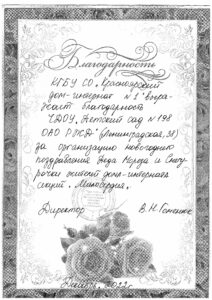 Благодарность
КГБУ СО „Красноярский
дом-интернат № 2" выра-
жает благодарность
ЧДОУ „Детский сад № 198
ОАО „РЖД" (Ленинградская, 38)
за организацию новогоднего
поздравления Деда Мороза и Снегу-
рочки жителей дома-интерната
секции „Милосердия".
Директор В. Н.
Декабрь, 2022 г.